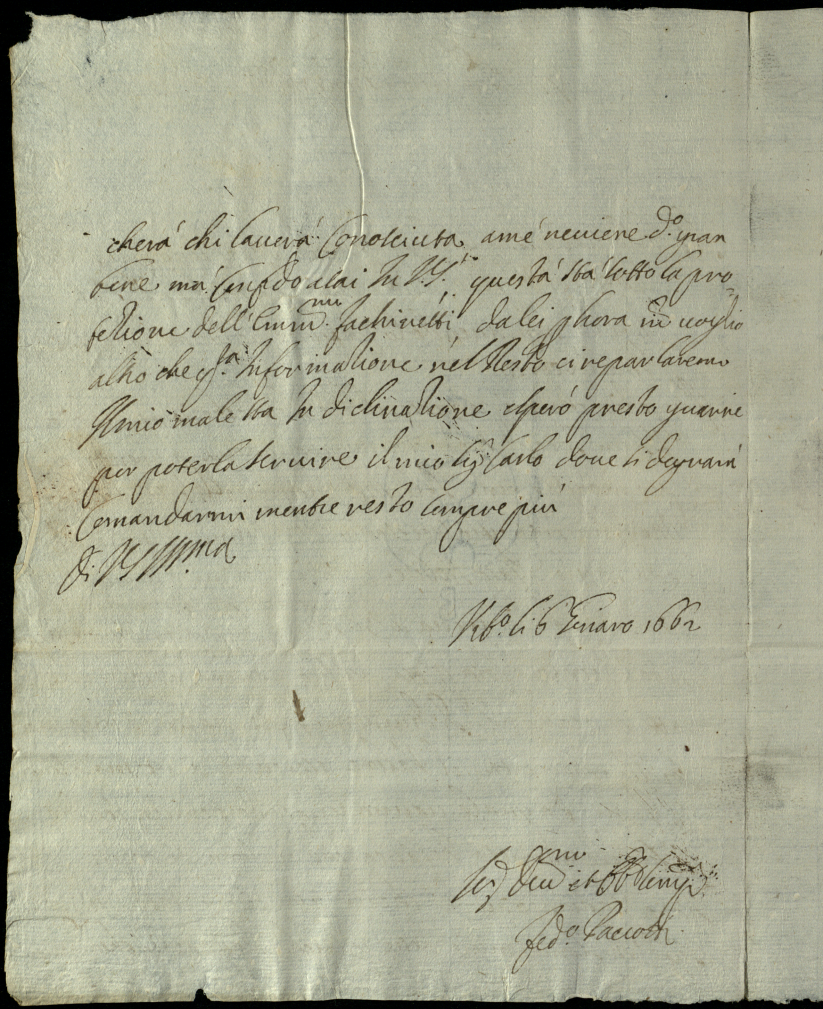 cherà chi l'averà conosciuta a me ne viene d.o gran
bene mà confido assai in V.S. questa sta sotto la pro=
tetione dell'Emin.mo Fachinetti da lei p hora nō voglio
altro che q.sta informatione nel resto ci reparlaremo
Il mio male sta in diclinatione e sperò presto guarire
per poterla servire il mio Sig Carlo dove si degnarà
Comandarmi mentre resto sempre più
di V S Ill.ma
Urb.o li 6 Genaro 1662
Ser Dev.mo et Obb semp.
Fed.o